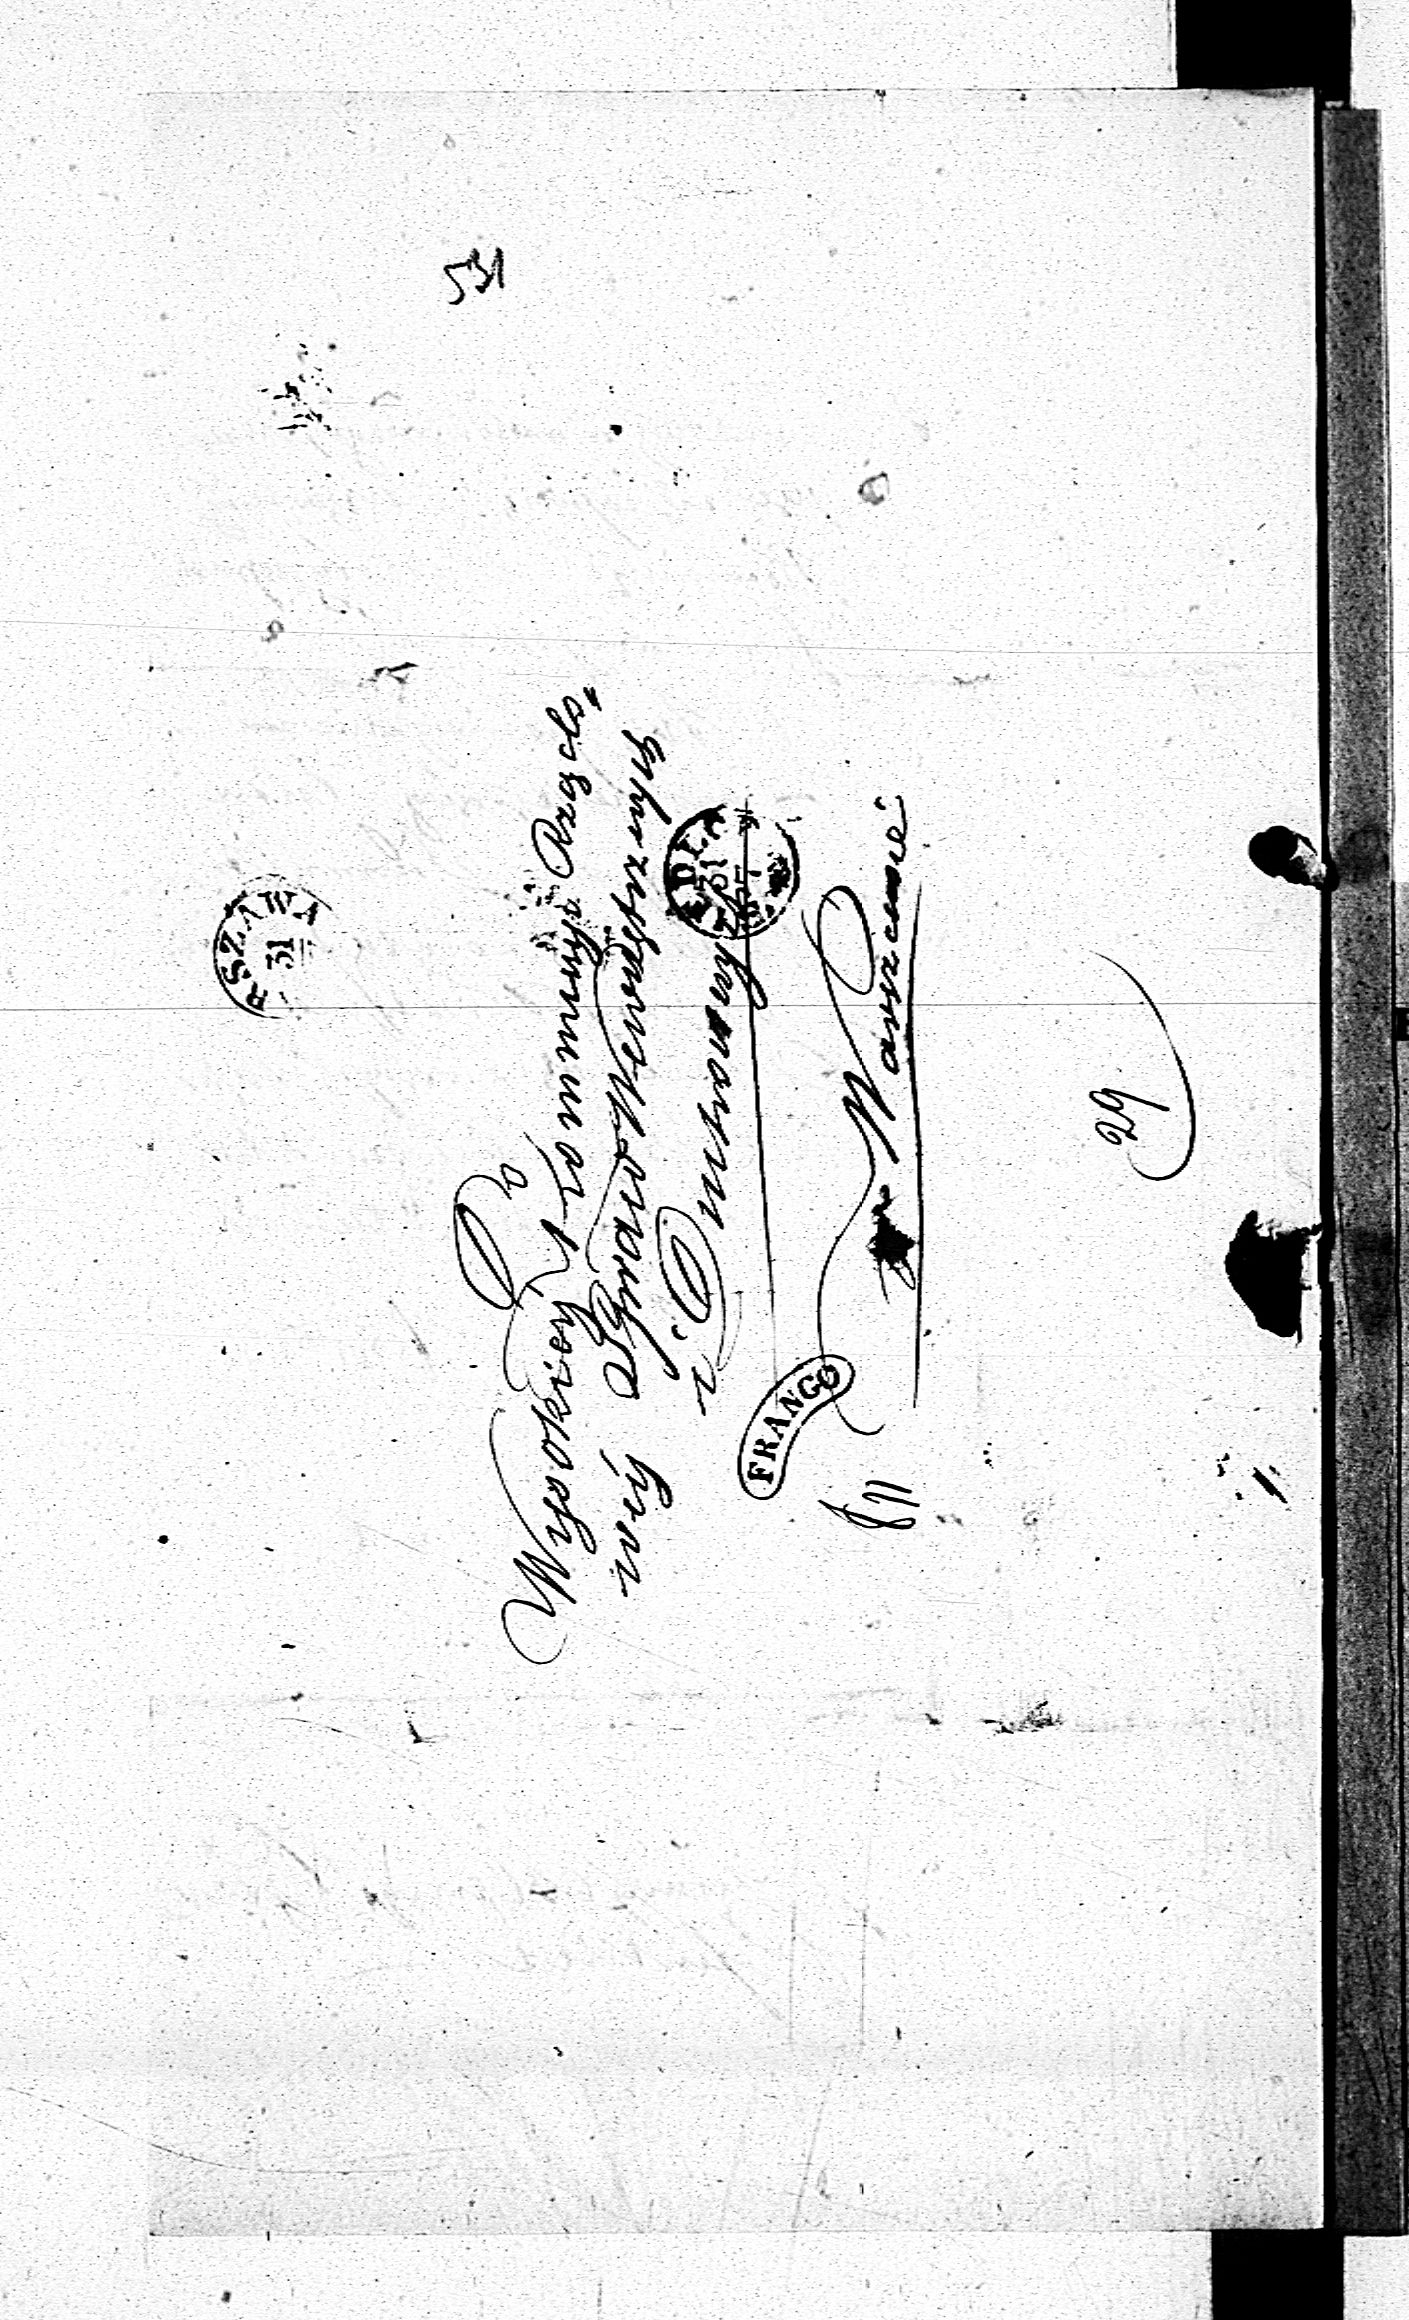 531
WARSZAWA
31
Do
Wysokiey Kommissyi Rządo„
wey Spraw Wewnętrznych
i Duchownych
31
w Warszawie
FRANCO
29